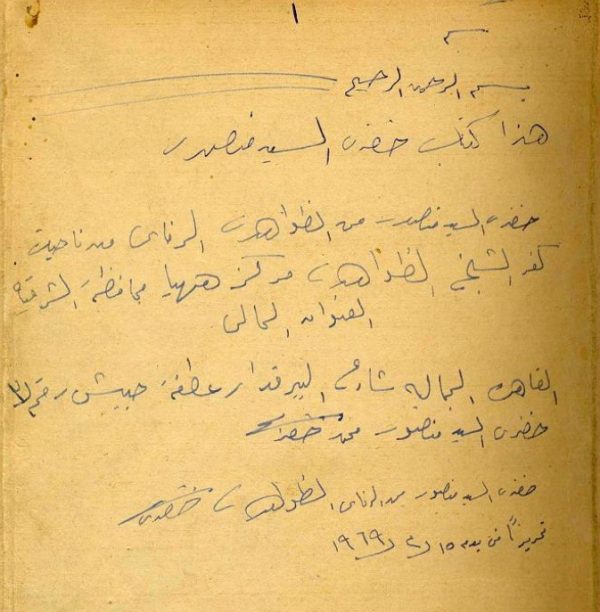 ١
بسم
بسم الله الرحمن الرحيم
هذا كتاب خضرى السيد منصور
خضرى السيد منصور من الظواهرى الرفاعى من ناحية
كفر الشيخ الظواهرى مركز ههيا محافظة الشرقية
العنوان الحالى
القاهرة الجمالية شارع البيرقدار عطفة حبيش رقم
خضرى السيد منصور محمد خضرى
خضرى السيد منصور من الرفاعى الظواهرى خضرى
تحريراً فى يوم ١٥ / ٢ / ١٩٦٩